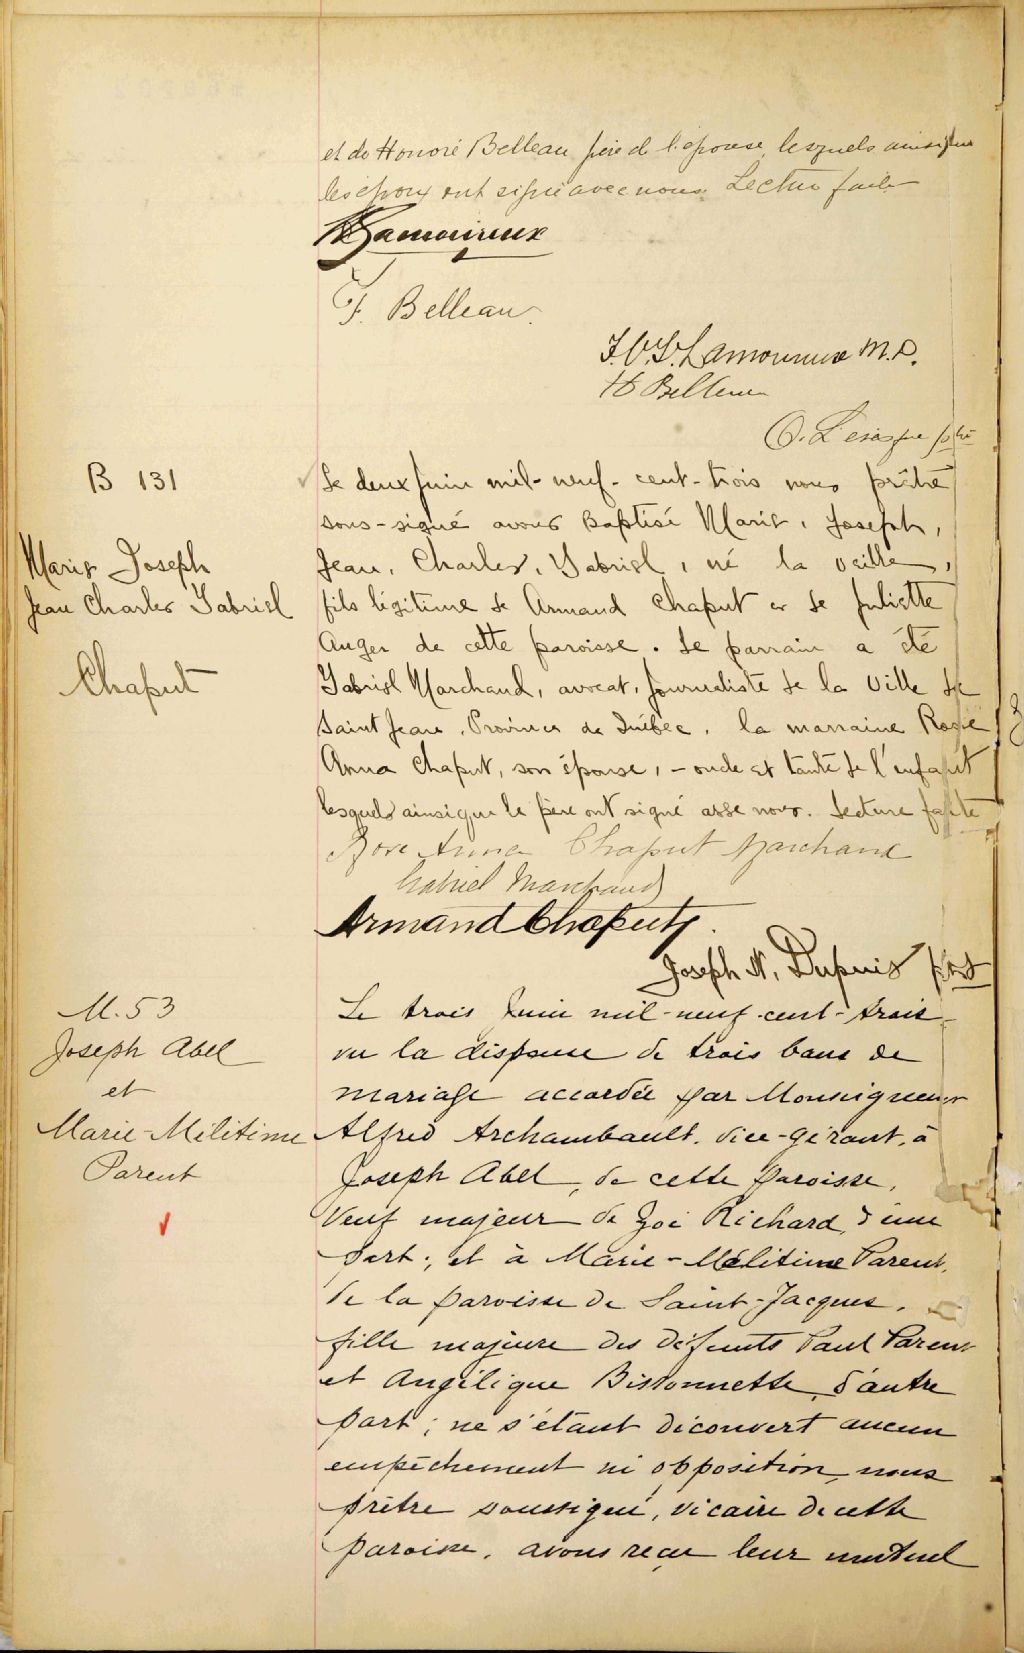 et de Honoré Belleau père de l'épouse, lesquels ainsi que
les époux ont signé avec nous. Lecture faite
Lamoureux
F. Belleau.
J. O. L. Lamoureux M.D.
H Belleau
O. Lévesque ptre
B 131
Marie Joseph
Jean Charles Gabriel
Chaput
Le deux Juin mil-neuf-cent-trois nous prêtre
sous-signé avons baptisé Marie, Joseph,
Jean, Charles, Gabriel, né la veille,
fils légitime de Armand Chaput et de Juliette
Auger de cette paroisse. Le parrain a été
Gabriel Marchand, avocat, journaliste de la Ville de
Saint Jean, Province de Québec, la marraine Rose
Anna Chaput, son épouse, - oncle et tante de l'enfant
lesquels ainsi que le père ont signé avec nous. Lecture faite
Rose Anna Chaput Marchand
Gabriel Marchand
Armand Chaput
Joseph N. Dupuis ptre
M. 53
Joseph Abel
et
Marie-Mélitime
Parent
Le trois Juin mil-neuf-cent-trois
vu la dispense de trois bans de
mariage accordée par Monseigneur
Alfred Archambault, vice-gérant, à
Joseph Abel, de cette paroisse,
Veuf majeur de Zoé Richard, d'une
part; et à Marie-Mélitime Parent,
de la paroisse de Saint-Jacques,
fille majeure des défunts Paul Parent
et Angélique Bissonnette, d'autre
part; ne s'étant découvert aucun
empêchement ni opposition, nous
prêtre soussigné, vicaire de cette
paroisse, avons reçu leur mutuel